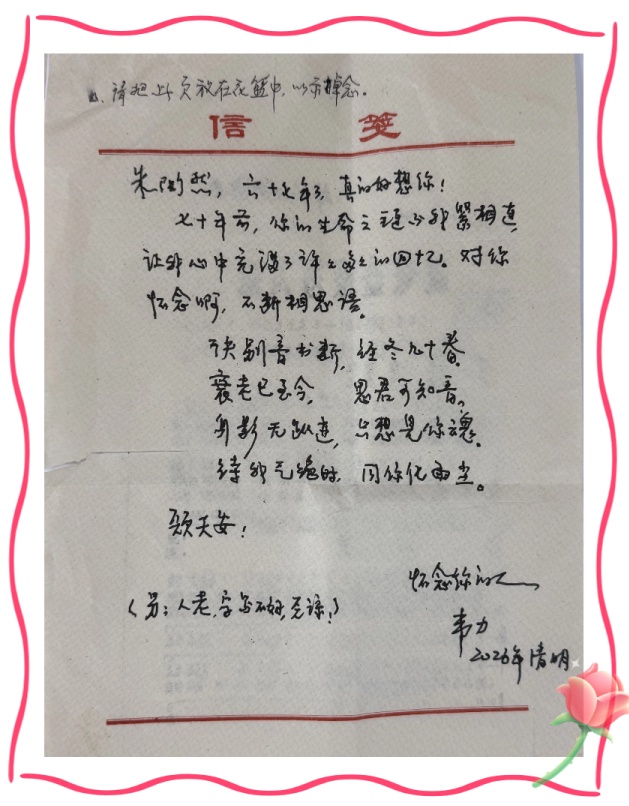 请把此页放在花篮中，以示悼念。
信 笺
朱陶然，六十七年了，真的好想你！
七十年前，你的生命之链与我紧相连，
让我心中充满了许许多多的回忆。对你
怀念啊，不断相思语。
诀别音书断，经冬九十春。
衰老已至今，思君可知音。
身影无踪迹，只想见你魂。
待我气绝时，同你化雨尘。
愿天安！
怀念你的人
（另：人老，字写不好，见谅！）
韦力
2026年清明